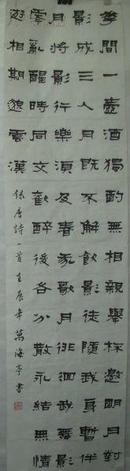 花間一壺酒獨酌無相親舉杯邀明月對
影成三人月既不解飲影徒隨我身暫伴
月將影行樂須及春我歌月徘徊我舞影
零亂醒時同交歡醉後各分散永結無情
遊相期邈雲漢
唐詩一首壬辰年萬海亭書